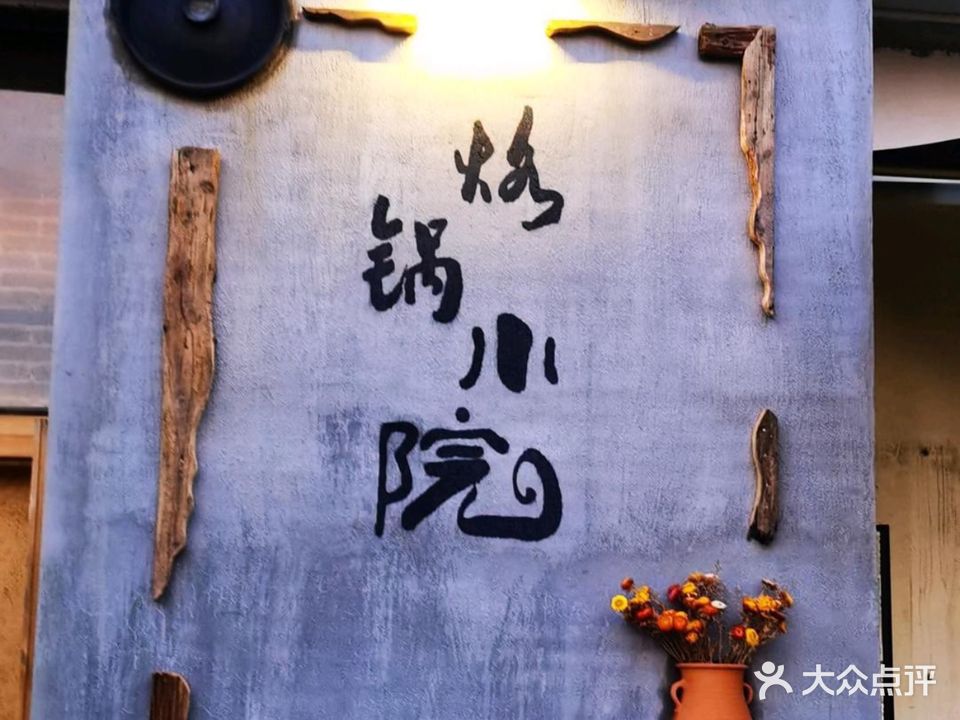 烙
锅
小
院
大众点评